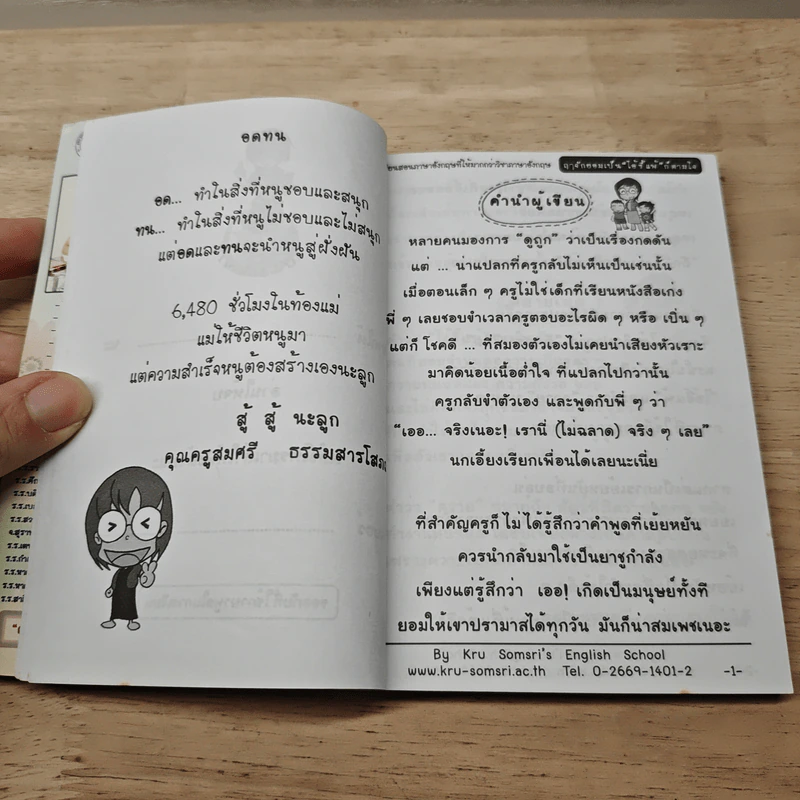 อดทน
อด... ทำในสิ่งที่หนูชอบและสนุก
ทน... ทำในสิ่งที่หนูไม่ชอบและไม่สนุก
แต่อดและทนจะนำหนูสู่ฝั่งฝัน
6,480 ชั่วโมงในท้องแม่
แม่ให้ชีวิตหนูมา
แต่ความสำเร็จหนูต้องสร้างเองนะลูก
สู้ สู้ นะลูก
คุณครูสมศรี ธรรมสารโสภณ
สอนภาษาอังกฤษที่ให้มากกว่าวิชาภาษาอังกฤษ
คำนำผู้เขียน
หลายคนมองการ “ดูถูก” ว่าเป็นเรื่องกดดัน
แต่ ... น่าแปลกที่ครูกลับไม่เห็นเป็นเช่นนั้น
เมื่อตอนเล็ก ๆ ครูไม่ใช่เด็กที่เรียนหนังสือเก่ง
พี่ ๆ เลยชอบขำเวลาครูตอบอะไรผิด ๆ หรือ เปิ่น ๆ
แต่ก็ โชคดี ... ที่สมองตัวเองไม่เคยนำเสียงหัวเราะ
มาคิดน้อยเนื้อต่ำใจ ที่แปลกไปกว่านั้น
ครูกลับขำตัวเอง และพูดกับพี่ ๆ ว่า
“เออ... จริงเนอะ! เรานี่ (ไม่ฉลาด) จริง ๆ เลย”
นกเอี้ยงเรียกเพื่อนได้เลยนะเนี่ย
ที่สำคัญครูก็ ไม่ได้รู้สึกว่าคำพูดที่เย้ยหยัน
ควรนำกลับมาใช้เป็นยาชูกำลัง
เพียงแต่รู้สึกว่า เออ! เกิดเป็นมนุษย์ทั้งที
ยอมให้เขาปรามาสได้ทุกวัน มันก็น่าสมเพชเนอะ
By Kru Somsri's English School
www.kru-somsri.ac.th Tel. 0-2669-1401-2 -1-